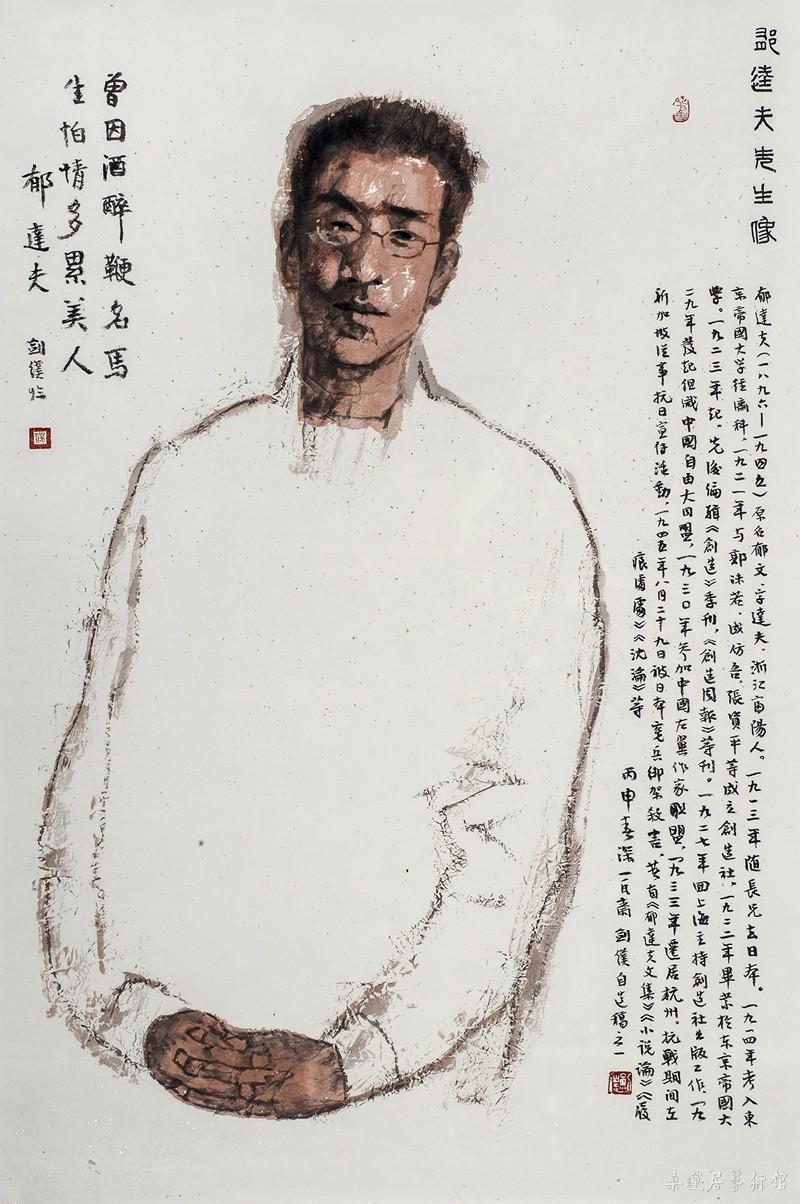 郁達夫先生像
郁達夫(一八九六—一九四五)原名郁文,字達夫,浙江富陽人。一九一三年随長兄去日本。一九一四年考入東
京帝國大学經濟科,一九二一年与郭沫若、成仿吾、張資平等成立創造社,一九二二年畢業於东京帝國大
學。一九二三年起,先後编辑《創造》季刊,《創造周報》等刊。一九二七年回上海主持創造社出版工作,一九
二九年發起但成中國自由大同盟,一九三〇年参加中國左翼作家聯盟,一九三三年遷居杭州。抗戰期間在
新加坡從事抗日宣传活動,一九四五年八月二十九日被日本憲兵绑架殺害。著有《郁達夫文集》《小説論》《屐
痕處處》《沈淪》等
丙申春深一月肅 劍漢自造稿之一
曾因酒醉鞭名馬
生怕情多累美人
郁達夫
劍漢